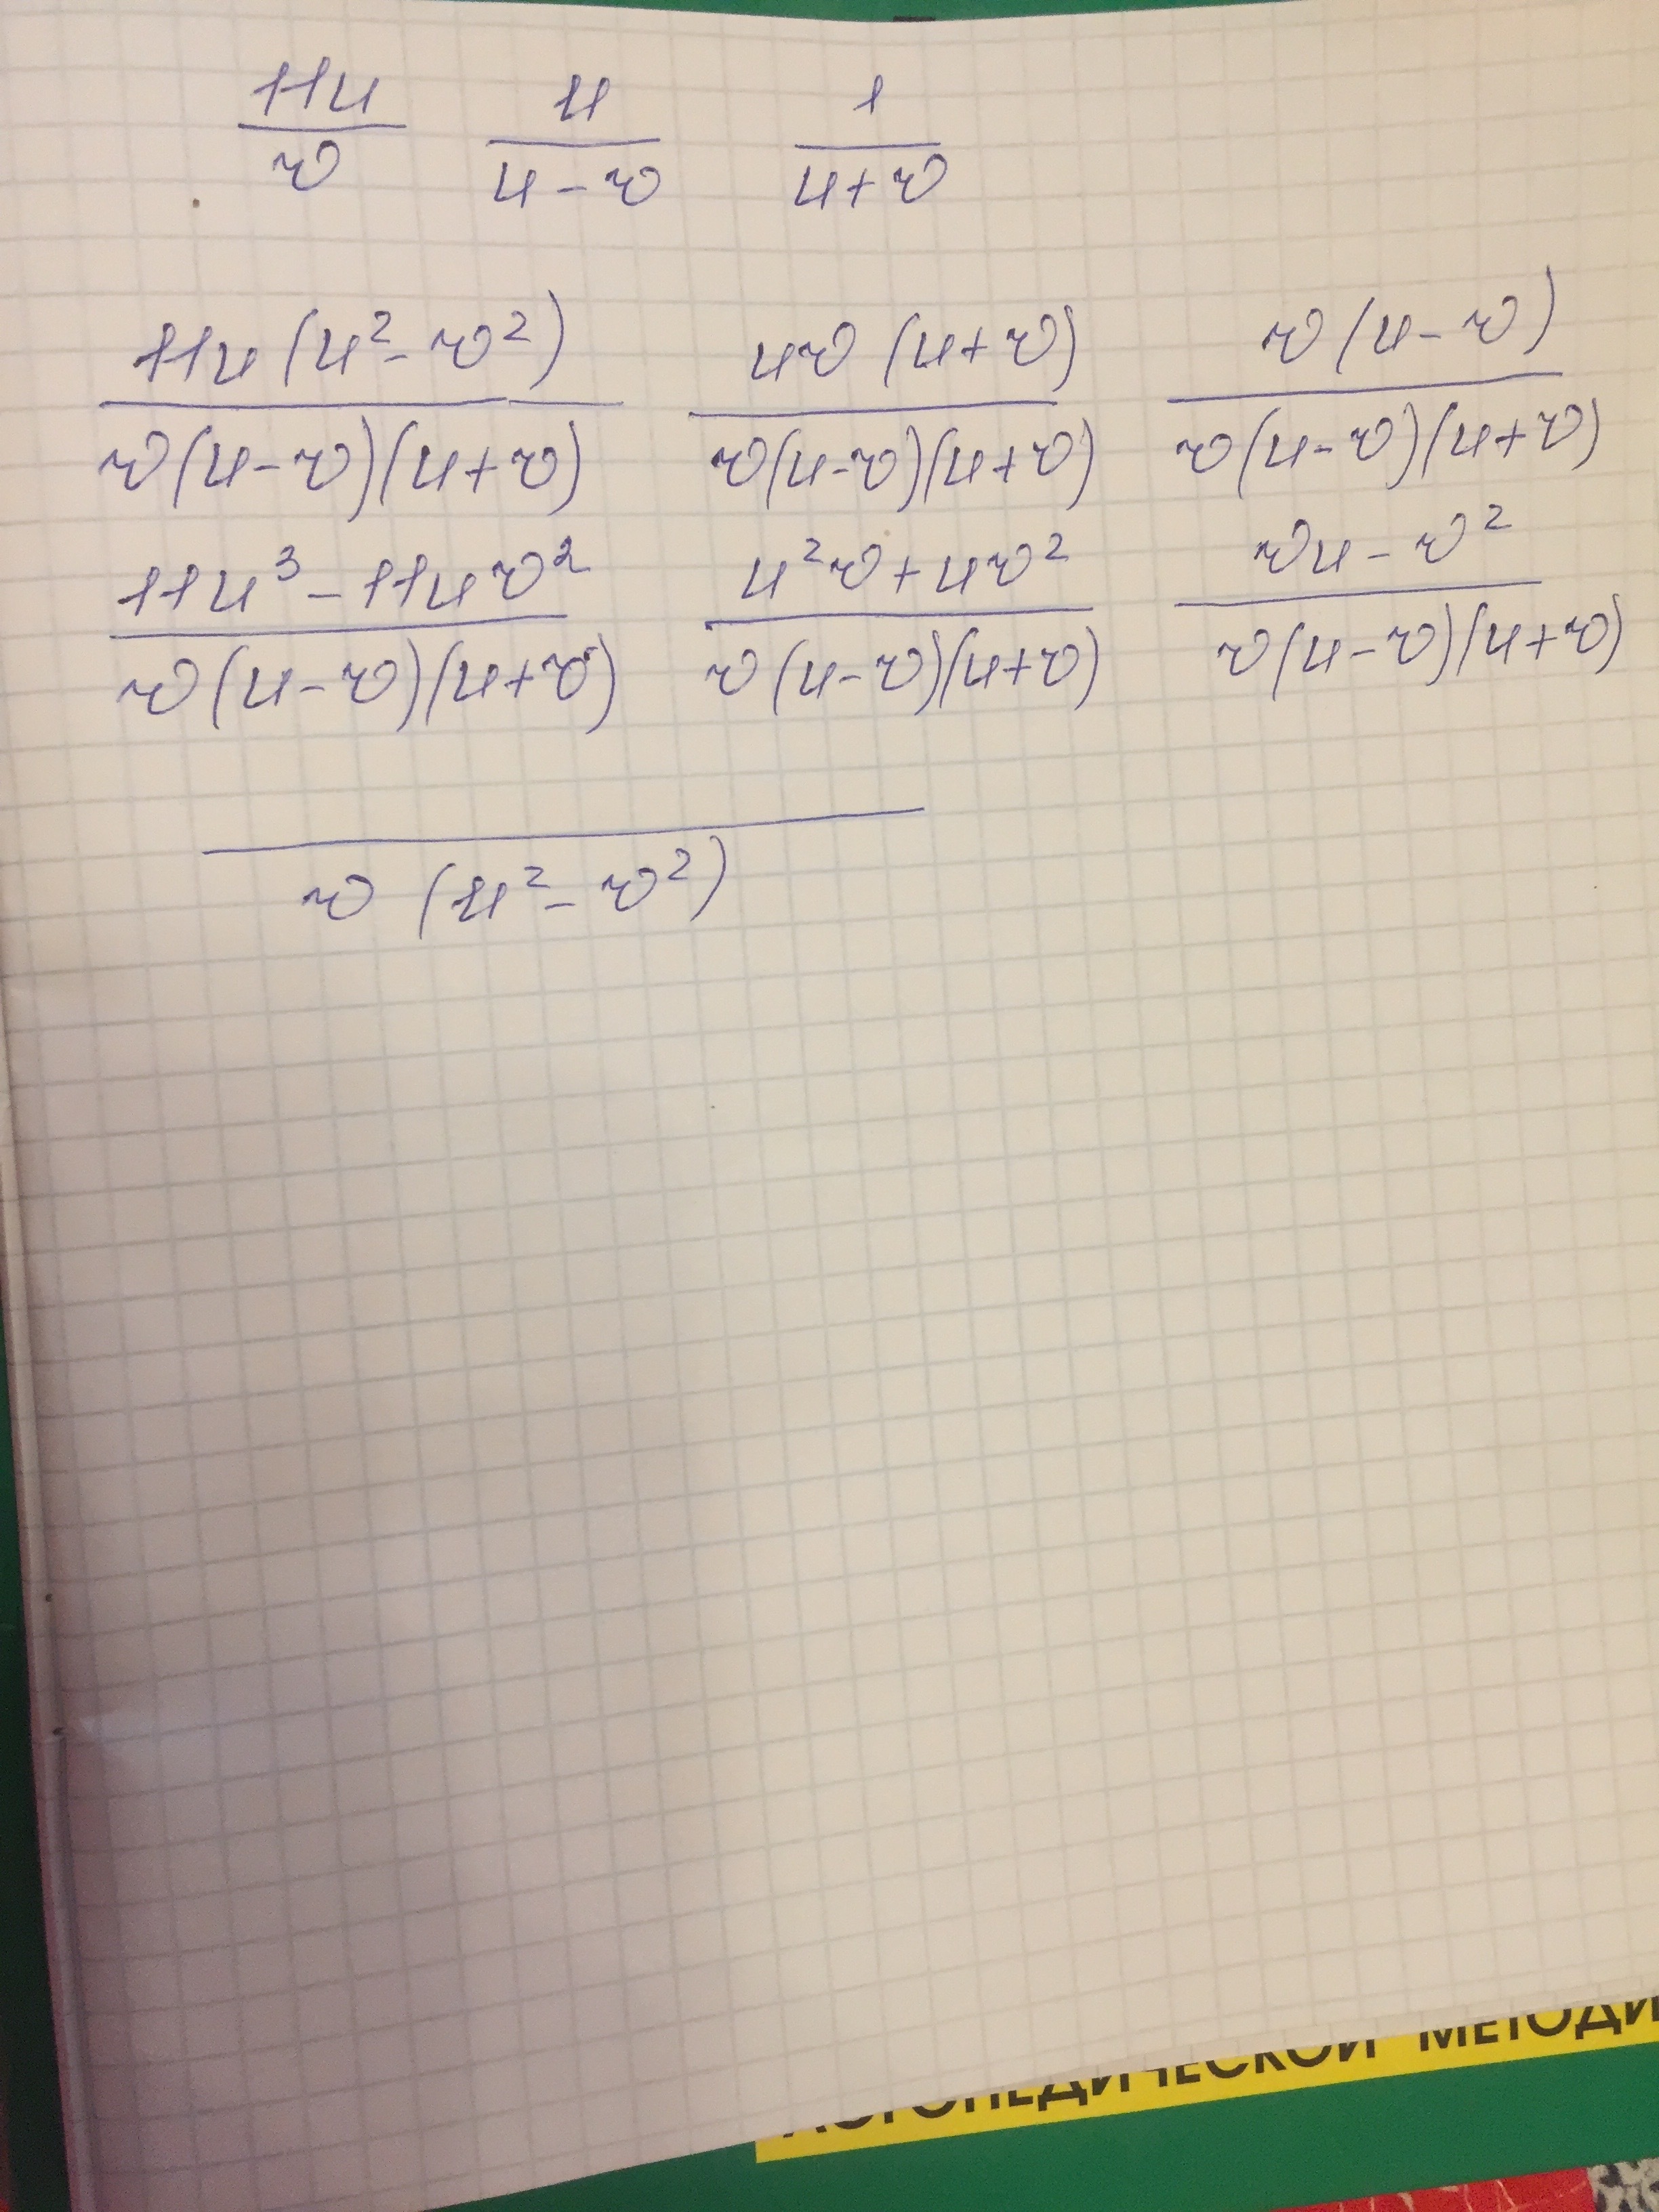 11u/v u/(u-v) 1/(u+v)
11u(u²-v²)/(v(u-v)(u+v)) uv(u+v)/(v(u-v)(u+v)) v(u-v)/(v(u-v)(u+v))
(11u³-11uv²)/(v(u-v)(u+v)) (u²v+uv²)/(v(u-v)(u+v)) (vu-v²)/(v(u-v)(u+v))
v(u²-v²)
ЛОГОПЕДИЧЕСКОЙ МЕТОДИ